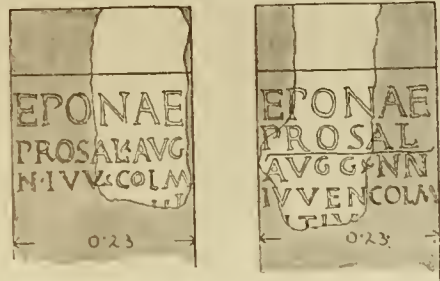 EPONAE
PROSAL·AVG
N·IVV COLM
0·23
EPONAE
PROSAL
AVGG NN
IVVENCOLM
0·23